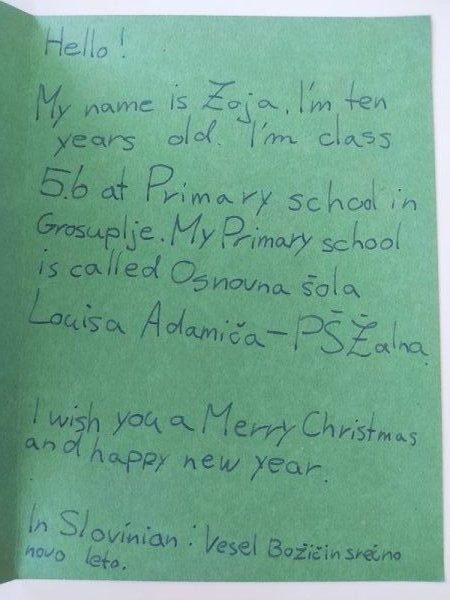 Hello!
My name is Zoja. I'm ten
years old. I'm class
5.b at Primary school in
Grosuplje. My Primary school
is called Osnovna šola
Louisa Adamiča - PŠ Žalna.
I wish you a Merry Christmas
and happy new year.
In Slovinian: Vesel Božič in srečno
novo leto.